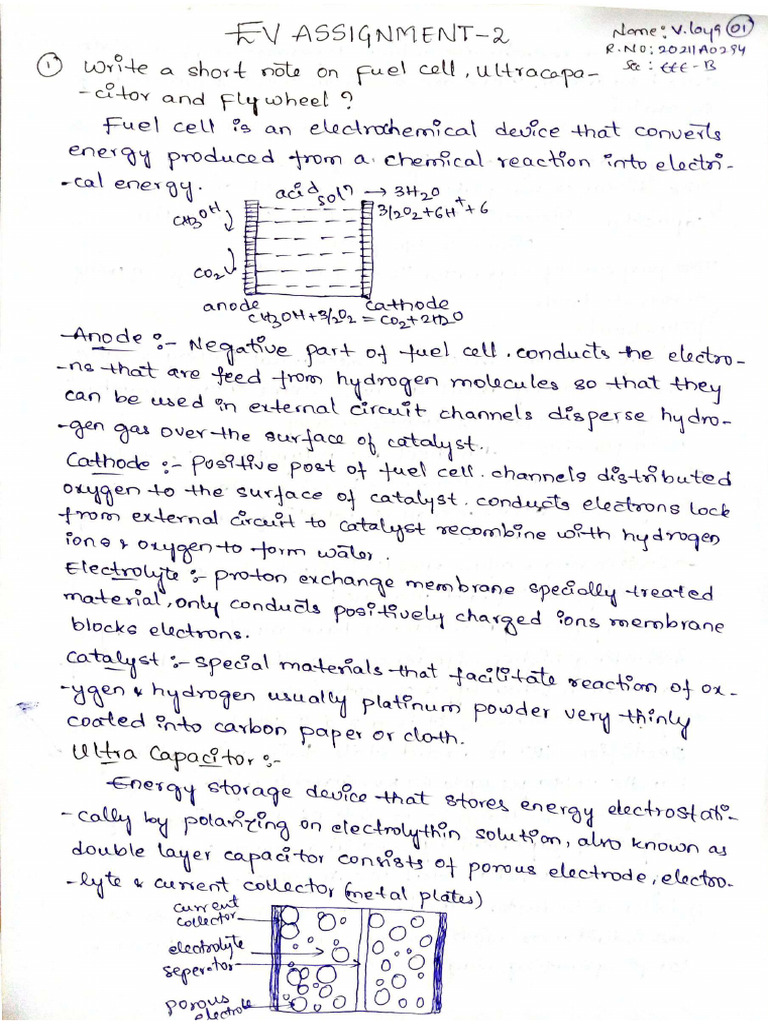 EV ASSIGNMENT-2
Name: V. Loya 01
R.NO: 20211A0294
Sec: EEE-B
① Write a short note on fuel cell, ultracapa-
-citor and flywheel?
Fuel cell is an electrochemical device that converts
energy produced from a chemical reaction into electri-
-cal energy.
acid soln → 3H2O
CH3OH
3/2O2+6H+ +6
CO2
anode
cathode
CH3OH+3/2O2 = CO2+2H2O
Anode :- Negative part of fuel cell. conducts the electro-
-ns that are feed from hydrogen molecules so that they
can be used in external circuit channels disperse hydro-
-gen gas over the surface of catalyst.
Cathode :- positive post of fuel cell. channels distributed
oxygen to the surface of catalyst. conducts electrons lock
from external circuit to catalyst recombine with hydrogen
ions & oxygen to form water.
Electrolyte :- proton exchange membrane specially treated
material, only conducts positively charged ions membrane
blocks electrons.
Catalyst :- special materials that facilitate reaction of ox-
-ygen & hydrogen usually platinum powder very thinly
coated into carbon paper or cloth.
Ultra Capacitor :-
Energy storage device that stores energy electrostati-
-cally by polarizing on electrolythin solution, also known as
double layer capacitor consists of porous electrode, electro-
-lyte & current collector (metal plates)
current
collector
electrolyte
seperator
porous
electrode